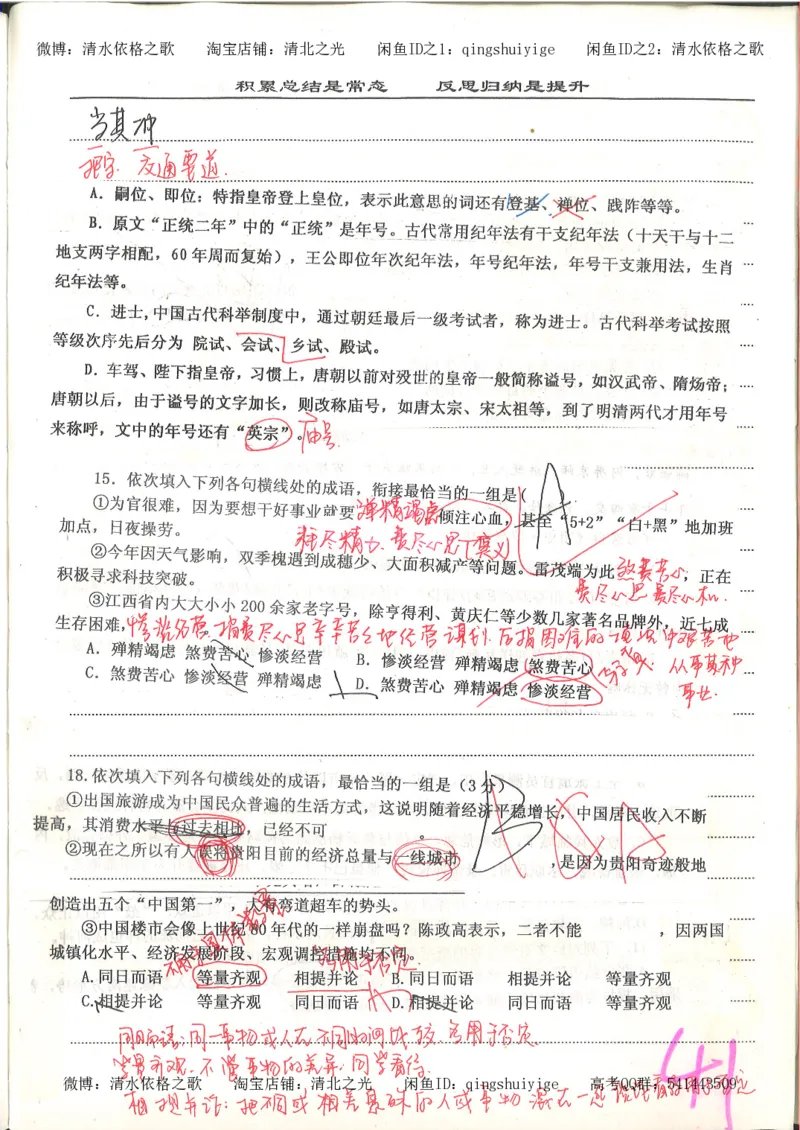 微博：清水依格之歌 淘宝店铺：清北之光 闲鱼ID之1：qingshuiyige 闲鱼ID之2：清水依格之歌
积累总结是常态 反思归纳是提升
当其冲
把守 交通要道.
A．嗣位、即位：特指皇帝登上皇位，表示此意思的词还有登基、禅位、践阼等等。
B．原文“正统二年”中的“正统”是年号。古代常用纪年法有干支纪年法（十天干与十二
地支两字相配，60年周而复始），王公即位年次纪年法，年号纪年法，年号干支兼用法，生肖
纪年法等。
C．进士,中国古代科举制度中，通过朝廷最后一级考试者，称为进士。古代科举考试按照
等级次序先后分为 院试、会试、乡试、殿试。
D．车驾、陛下指皇帝，习惯上，唐朝以前对殁世的皇帝一般简称谥号，如汉武帝、隋炀帝；
唐朝以后，由于谥号的文字加长，则改称庙号，如唐太宗、宋太祖等，到了明清两代才用年号
来称呼，文中的年号还有“英宗”。庙号
15．依次填入下列各句横线处的成语，衔接最恰当的一组是( A
①为官很难，因为要想干好事业就要 殚精竭虑 倾注心血，甚至“5+2”“白+黑”地加班
加点，日夜操劳。 耗尽精力.费尽心思(褒义)
②今年因天气影响，双季槐遇到成穗少、大面积减产等问题。雷茂端为此 煞费苦心，正在
积极寻求科技突破。 费尽心思 费尽心机.
③江西省内大大小小200余家老字号，除亨得利、黄庆仁等少数几家著名品牌外，近七成
生存困难，惨淡经营.指费尽心思辛辛苦苦地经营谋划.后指困难的境况中艰苦地
从事某种
事业.
A．殚精竭虑 煞费苦心 惨淡经营 B．惨淡经营 殚精竭虑 煞费苦心
C．煞费苦心 惨淡经营 殚精竭虑 D．煞费苦心 殚精竭虑 惨淡经营
18.依次填入下列各句横线处的成语，最恰当的一组是（3分） B A
①出国旅游成为中国民众普遍的生活方式，这说明随着经济平稳增长，中国居民收入不断
提高，其消费水平与过去相比，已经不可 。
②现在之所以有人误将贵阳目前的经济总量与一线城市 ,是因为贵阳奇迹般地
创造出五个“中国第一”，大有弯道超车的势头。
③中国楼市会像上世纪80年代的一样崩盘吗？陈政高表示，二者不能 ，因两国
城镇化水平、经济发展阶段、宏观调控措施均不同。
A.同日而语 等量齐观 相提并论 B.同日而语 相提并论 等量齐观
C.相提并论 等量齐观 同日而语 D.相提并论 同日而语 等量齐观
同日而语:同一事物或人在不同时间比较.多用于否定
等量齐观.不管事物的差异.同等看待.
微博：清水依格之歌 淘宝店铺：清北之光 闲鱼ID：qingshuiyige 高考QQ群：541443509
相提并论：把不同或相差悬殊的人或事物混在一起
41